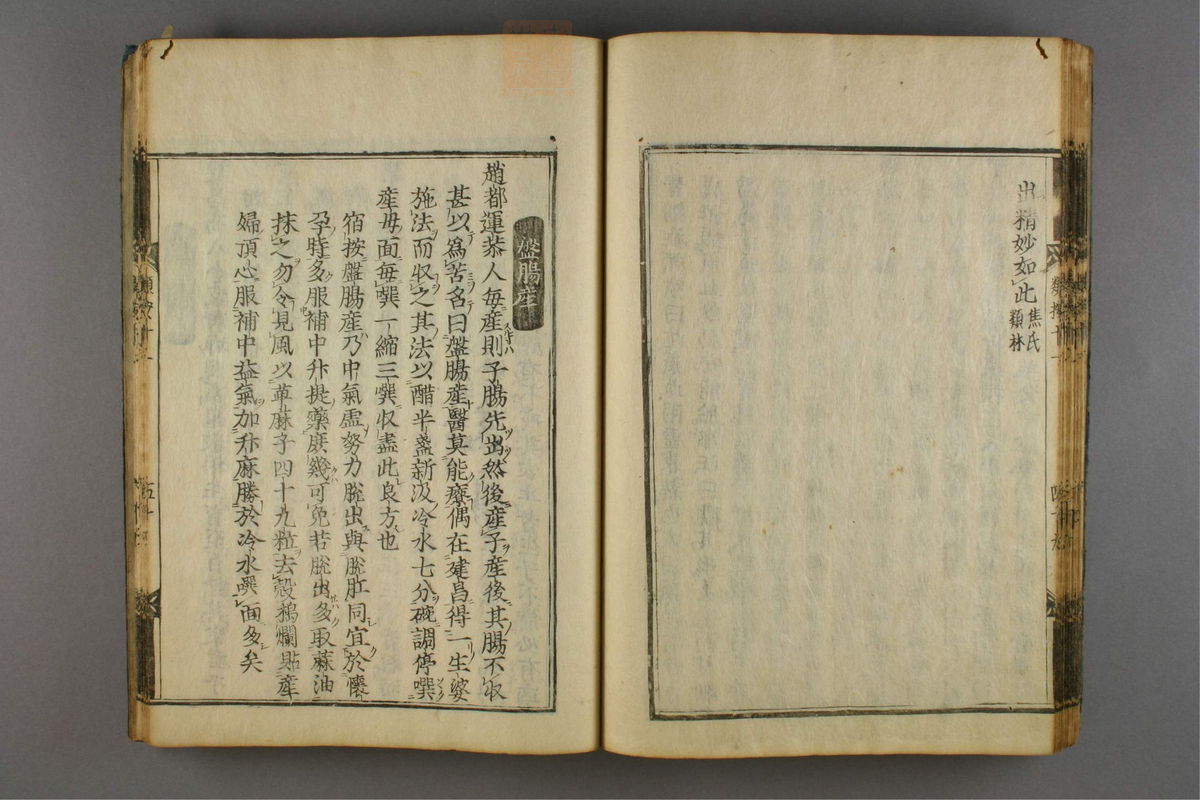 出精妙如此焦氏
類林
盤腸産
趙都運恭人毎産則子腸先出然後産子産後其腸不収
甚以為苦名曰盤腸産醫莫能療偶在建昌得一生婆
施法而収之其法以醋半盞新汲冷水七分碗調停噀
産母面毎噀一縮三噀収盡此良方也
宿按盤腸産乃中氣虚努力脱出與脱肛同宜於懐
孕時多服補中升提藥庶幾可免若脱出多取蔴油
抹之勿令見風以萆麻子四十九粒去殻搗爛貼産
婦頂心服補中益氣加升麻勝於冷水噀面多矣